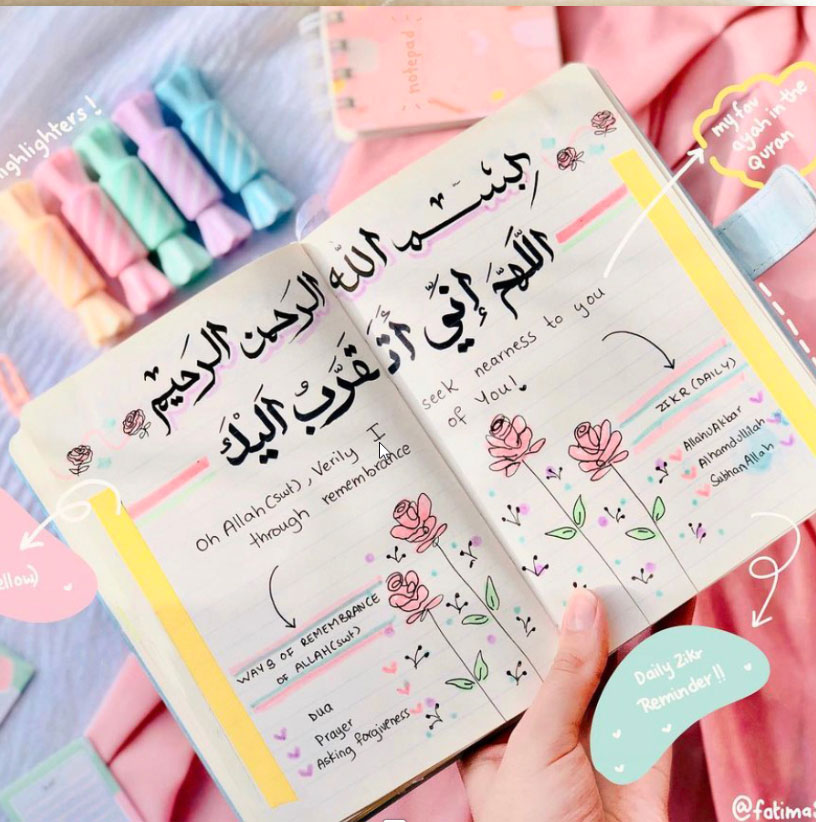 notepad
highlighters!
my fav
ayah in the
Quran
بِسْمِ اللّه الرحمن الرحيم
اللَّهُمَّ إِنِّي أَتَقَرَّبُ اليْكَ
Oh Allah(swt), Verily I seek nearness to you
through remembrance of You!
ZIKR (DAILY)
AllahuAkbar
Alhamdullilah
SubhanAllah
ellow)
WAYS OF REMEMBRANCE
OF ALLAH(swt)
Dua
Prayer
Asking forgiveness
Daily Zikr
Reminder!!